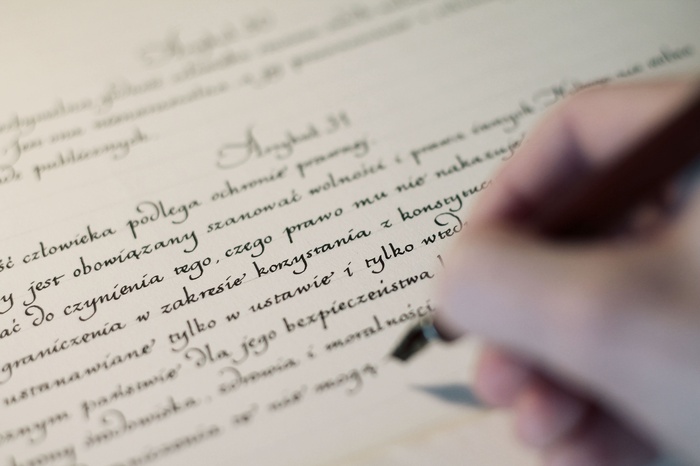 Artykuł 30
publicznych.
Artykuł 31
ść człowieka podlega ochronie prawnej.
y jest obowiązany szanować wolności i prawa innych. Nikogo nie wolno
ać do czynienia tego, czego prawo mu nie nakazuje
graniczenia w zakresie korzystania z konstytuc
ustanawiane tylko w ustawie i tylko wted
znym państwie dla jego bezpieczeństwa
hrony środowiska, zdrowia i moralności
aniczenia te nie mogą